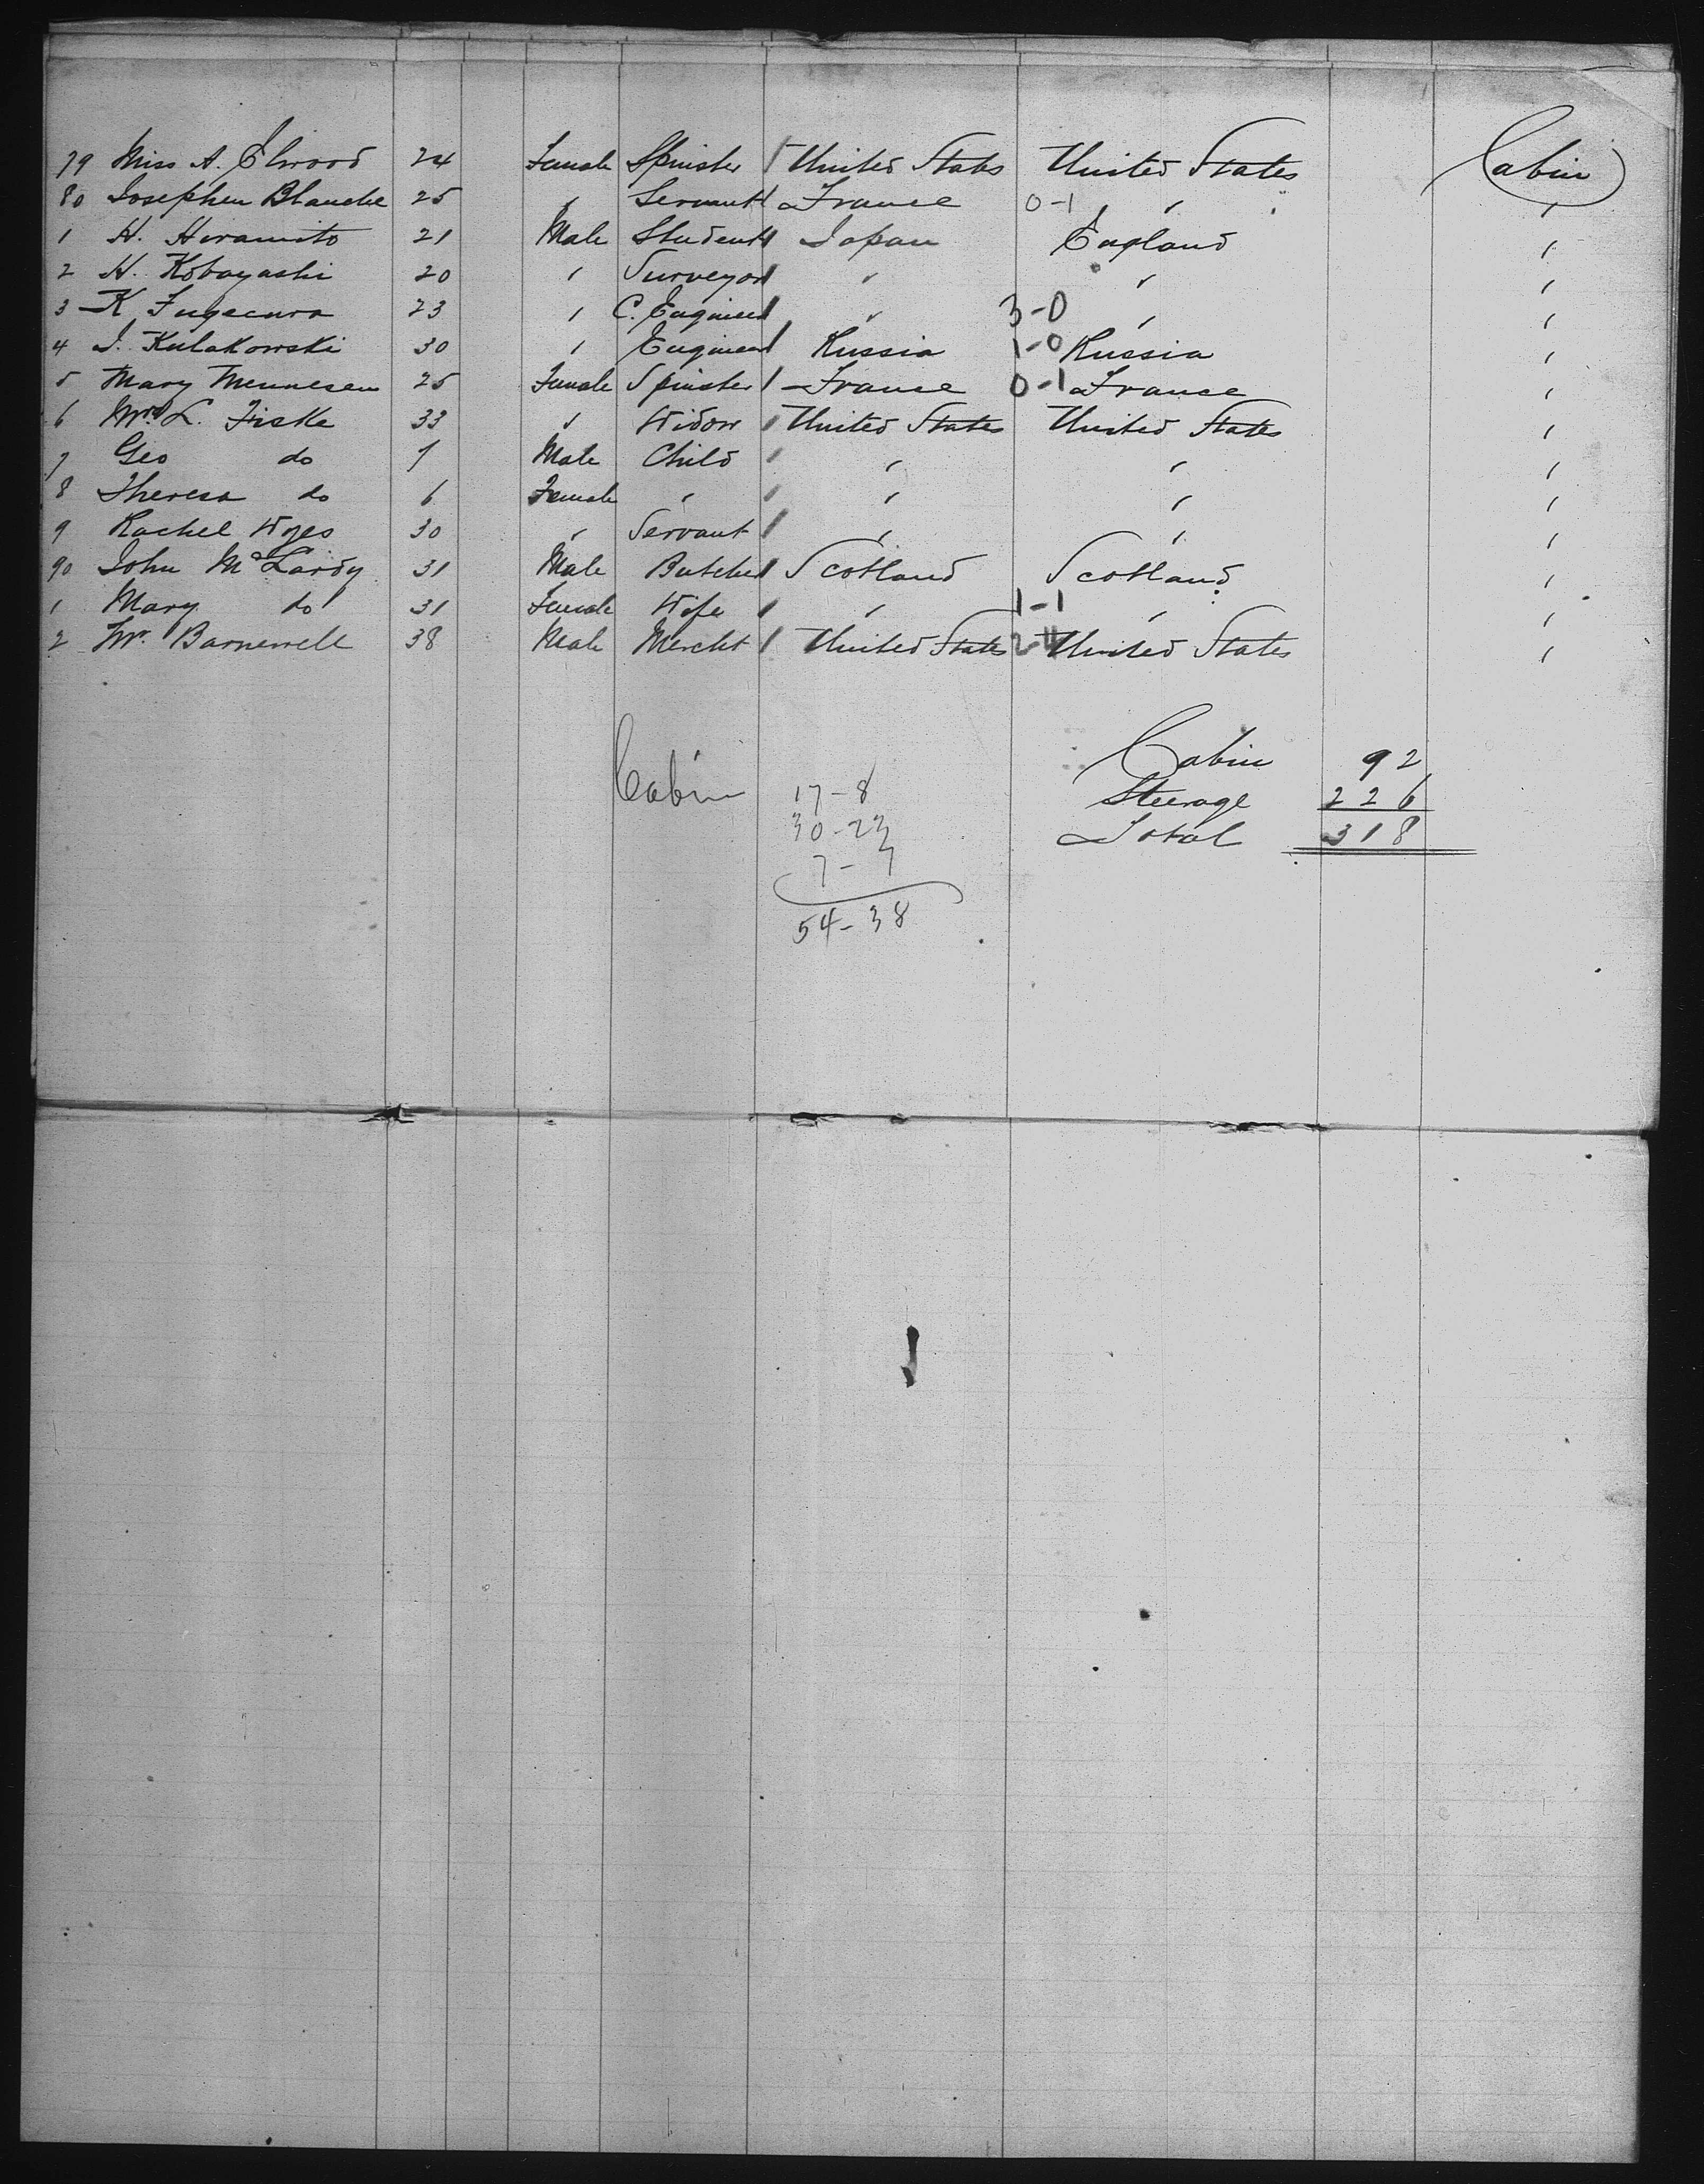 79 Miss A. Elwood 24 Female Spinster United States United States Cabin
80 Josephen Blanche 25 " Servant France 0-1 " "
1 H. Hiramito 21 Male Student Japan England "
2 H. Kobayashi 20 " Surveyor " " "
3 K 23 " C. Engineer " 3-0 " "
4 J. Kulakowski 30 " Engineer Russia 1-0 Russia "
5 Mary Mennesen 25 Female Spinster France 0-1 France "
6 Mrs L. Fiske 33 " Widow United States United States "
7 Geo do 7 Male Child " " "
8 Theresa do 6 Female " " " "
9 Rachel 30 " Servant " " "
90 John McLardy 31 Male Butcher Scotland Scotland "
1 Mary do 31 Female Wife " 1-1 " "
2 Barnewell 38 Male Mercht United States United States "
Cabin 92
Cabin 17-8 Steerage 226
30-23 Total 318
7-7
54-38